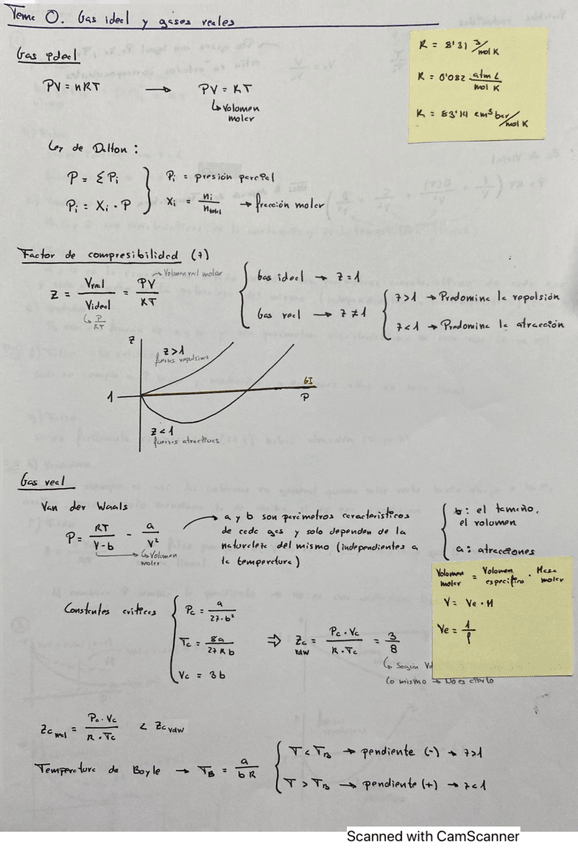 Tema 0. Gas ideal y gases reales
Gas ideal
PV = nRT → PV = RT
↳ Volumen
molar
R = 8'31 J/mol K
R = 0'082 atm L/mol K
R = 83'14 cm³ bar/mol K
Ley de Dalton:
P = ΣPi
Pi = Xi · P
Pi = presión parcial
Xi = ni/ntotal → fracción molar
Factor de compresibilidad (z)
Z = Vreal/Videal = PV/RT
→ Volumen real molar
↳ P/RT
Gas ideal → z = 1
Gas real → z ≠ 1
z>1 → Predomina la repulsión
z<1 → Predomina la atracción
z
z>1
fuerzas repulsivas
1
GI
P
z<1
fuerzas atractivas
Gas real
Van der Waals
P = RT/V-b - a/V²
↳ Volumen
molar
→ a y b son parámetros característicos
de cada gas y solo dependen de la
naturaleza del mismo (independientes a
la temperatura)
b: el tamaño,
el volumen
a: atracciones
Volumen molar = Volumen específico · Masa molar
V = Ve · M
Ve = 1/ρ
Constantes críticas
Pc = a/27·b²
Tc = 8a/27Rb
Vc = 3b
⇒ Zc vdw = Pc·Vc/R·Tc = 3/8
↳ Según Vd
lo mismo → No es cierto
Zc real = Pc·Vc/R·Tc < Zc vdw
Temperatura de Boyle → TB = a/bR
T < TB → pendiente (-) → z>1
T > TB → pendiente (+) → z<1
Scanned with CamScanner